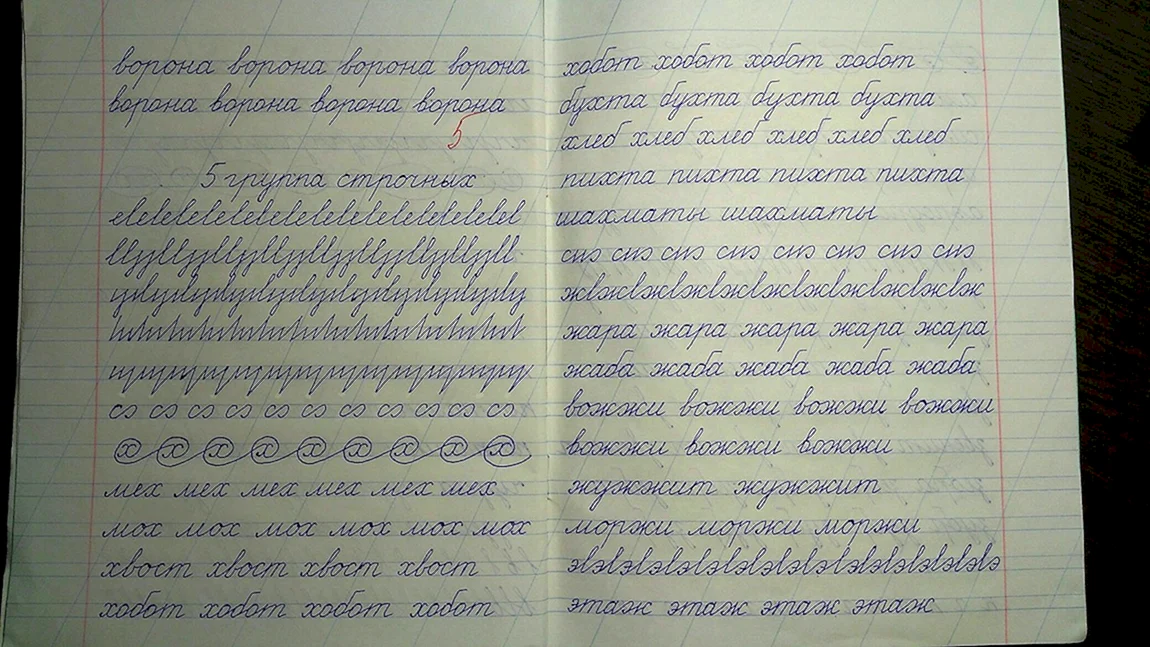 ворона ворона ворона ворона
ворона ворона ворона ворона
5
5 группа строчных
х х х х х х х х х
мех мех мех мех мех мех
мох мох мох мох мох мох
хвост хвост хвост хвост
хобот хобот хобот хобот
хобот хобот хобот хобот
бухта бухта бухта бухта
хлеб хлеб хлеб хлеб хлеб хлеб
пихта пихта пихта пихта
шахматы шахматы
жара жара жара жара жара
жаба жаба жаба жаба жаба
вожжи вожжи вожжи вожжи
вожжи вожжи вожжи
жужжит жужжит
моржи моржи моржи
этаж этаж этаж этаж